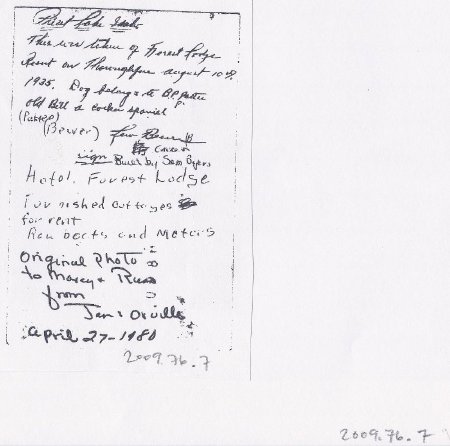 Priest Lake Idaho
This was taken of Forest Lodge
Resort on Thoroughfare august 10th
1935. Dog belongs to B.P. Potter
old Bill a cocker spaniel
(Potter)
(Beaver)
on
sign Built by Sam Byers
Hotel. Forest Lodge
Furnished Cottages
for rent
Row boats and Motors
Original Photo
to Marcy + Russ
from
Jan & Orville
April 27-1980
2009.76.7
2009.76.7